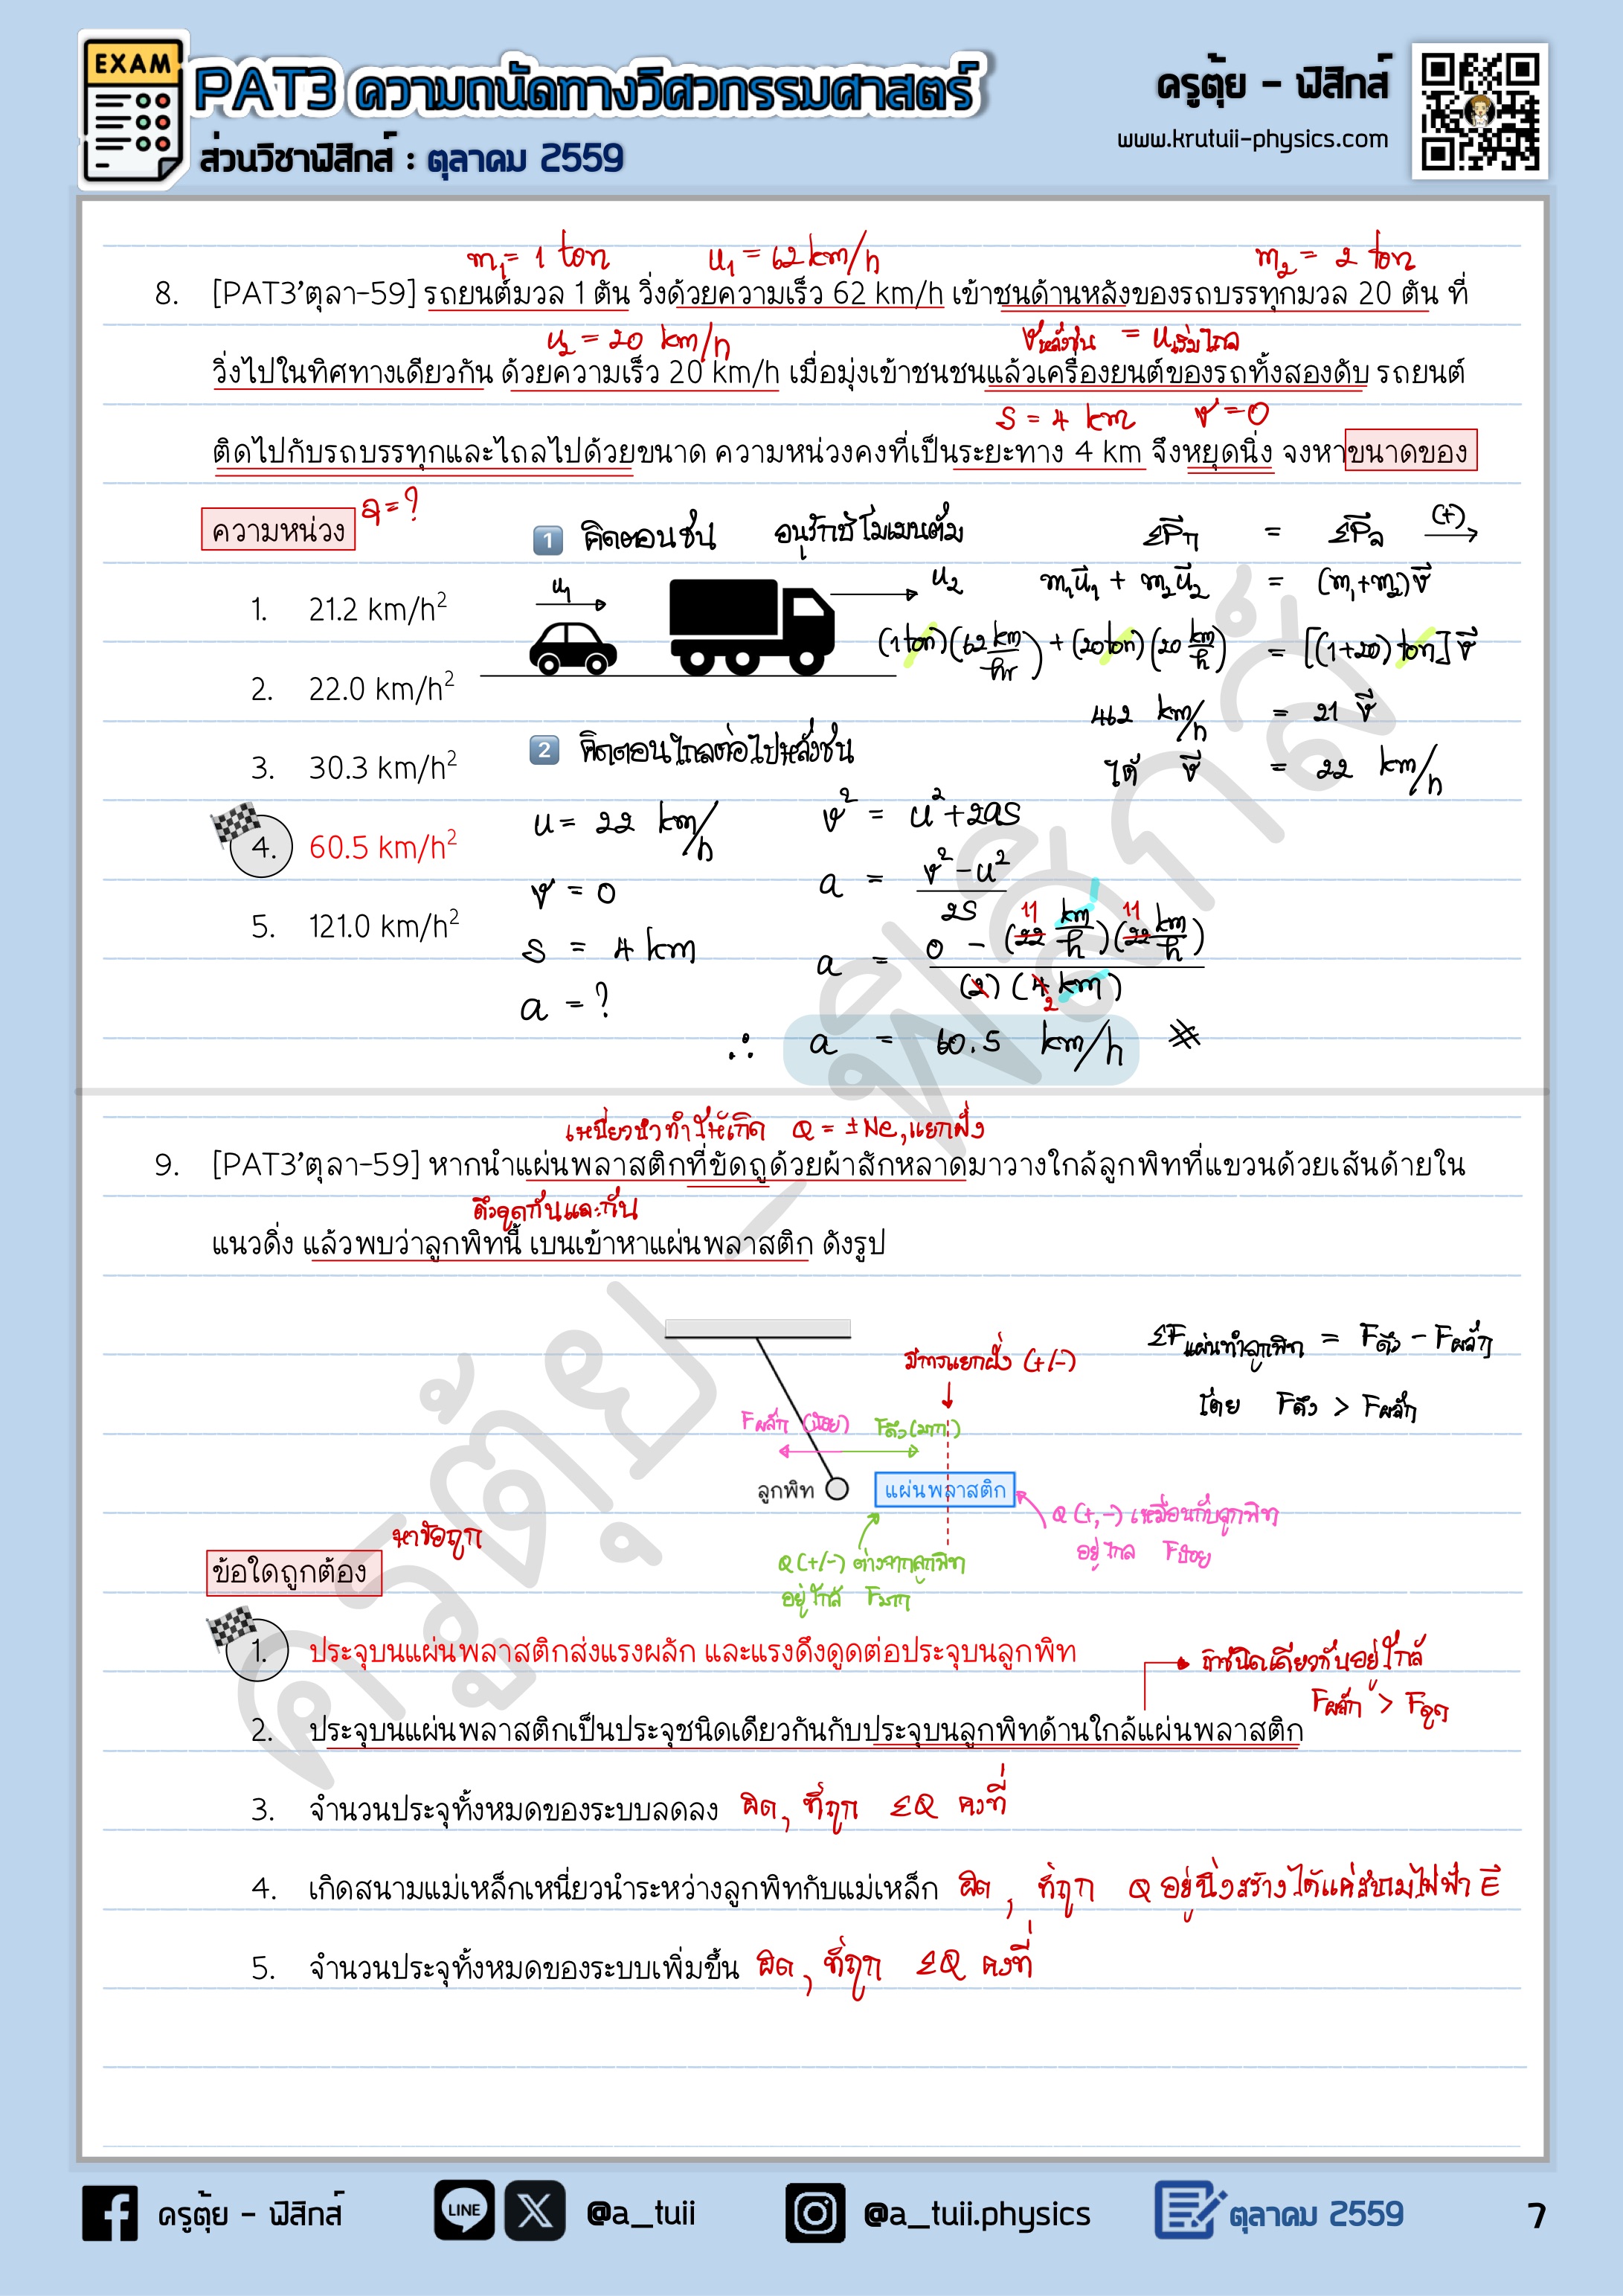 EXAM
PAT3 ความถนัดทางวิศวกรรมศาสตร์
ส่วนวิชาฟิสิกส์ : ตุลาคม 2559
ครูตุ้ย - ฟิสิกส์
www.krutuii-physics.com
m₁ = 1 ton u₁ = 62 km/h m₂ = 2 ton
8. [PAT3’ตุลา-59] รถยนต์มวล 1 ตัน วิ่งด้วยความเร็ว 62 km/h เข้าชนด้านหลังของรถบรรทุกมวล 20 ตัน ที่
u₂ = 20 km/h v หลังชน = u เริ่มไถล
วิ่งไปในทิศทางเดียวกัน ด้วยความเร็ว 20 km/h เมื่อมุ่งเข้าชนชนแล้วเครื่องยนต์ของรถทั้งสองดับ รถยนต์
s = 4 km v = 0
ติดไปกับรถบรรทุกและไถลไปด้วยขนาด ความหน่วงคงที่เป็นระยะทาง 4 km จึงหยุดนิ่ง จงหาขนาดของ
ความหน่วง a = ?
1 คิดตอนชน อนุรักษ์โมเมนตัม ΣP̄ก = ΣP̄ล (+)
u₁ u₂ m₁ū₁ + m₂ū₂ = (m₁+m₂)v̄
(1 ton)(62 km/hr) + (20 ton)(20 km/h) = [(1+20) ton] v̄
462 km/h = 21 v̄
ได้ v̄ = 22 km/h
1. 21.2 km/h²
2. 22.0 km/h²
3. 30.3 km/h²
4. 60.5 km/h²
5. 121.0 km/h²
2 คิดตอนไถลต่อไปหลังชน
u = 22 km/h v² = u² + 2as
v = 0 a = (v² - u²)/2s
s = 4 km a = 0 - (22 km/h)(22 km/h) / (2)(4 km)
11 11
2
a = ?
∴ a = 60.5 km/h #
เหนี่ยวนำทำให้เกิด Q = ±Ne, แยกฝั่ง
9. [PAT3’ตุลา-59] หากนำแผ่นพลาสติกที่ขัดถูด้วยผ้าสักหลาดมาวางใกล้ลูกพิทที่แขวนด้วยเส้นด้ายใน
ดึงดูดกันและกัน
แนวดิ่ง แล้วพบว่าลูกพิทนี้ เบนเข้าหาแผ่นพลาสติก ดังรูป
ΣF แผ่นทำลูกพิท = F ดึง - F ผลัก
มีการแยกฝั่ง (+/-)
โดย F ดึง > F ผลัก
F ผลัก (น้อย) F ดึง (มาก)
ลูกพิท แผ่นพลาสติก
Q (+,-) เหมือนกับลูกพิท
อยู่ไกล F น้อย
Q (+/-) ต่างจากลูกพิท
อยู่ใกล้ F มาก
หาข้อถูก
ข้อใดถูกต้อง
1. ประจุบนแผ่นพลาสติกส่งแรงผลัก และแรงดึงดูดต่อประจุบนลูกพิท
ถ้าชนิดเดียวกันอยู่ใกล้
F ผลัก > F ดูด
2. ประจุบนแผ่นพลาสติกเป็นประจุชนิดเดียวกันกับประจุบนลูกพิทด้านใกล้แผ่นพลาสติก
3. จำนวนประจุทั้งหมดของระบบลดลง ผิด, ที่ถูก ΣQ คงที่
4. เกิดสนามแม่เหล็กเหนี่ยวนำระหว่างลูกพิทกับแม่เหล็ก ผิด, ที่ถูก Q อยู่นิ่งสร้างได้แค่สนามไฟฟ้า Ē
5. จำนวนประจุทั้งหมดของระบบเพิ่มขึ้น ผิด, ที่ถูก ΣQ คงที่
ครูตุ้ย - ฟิสิกส์
ครูตุ้ย - ฟิสิกส์ LINE X @a_tuii @a_tuii.physics ตุลาคม 2559 7